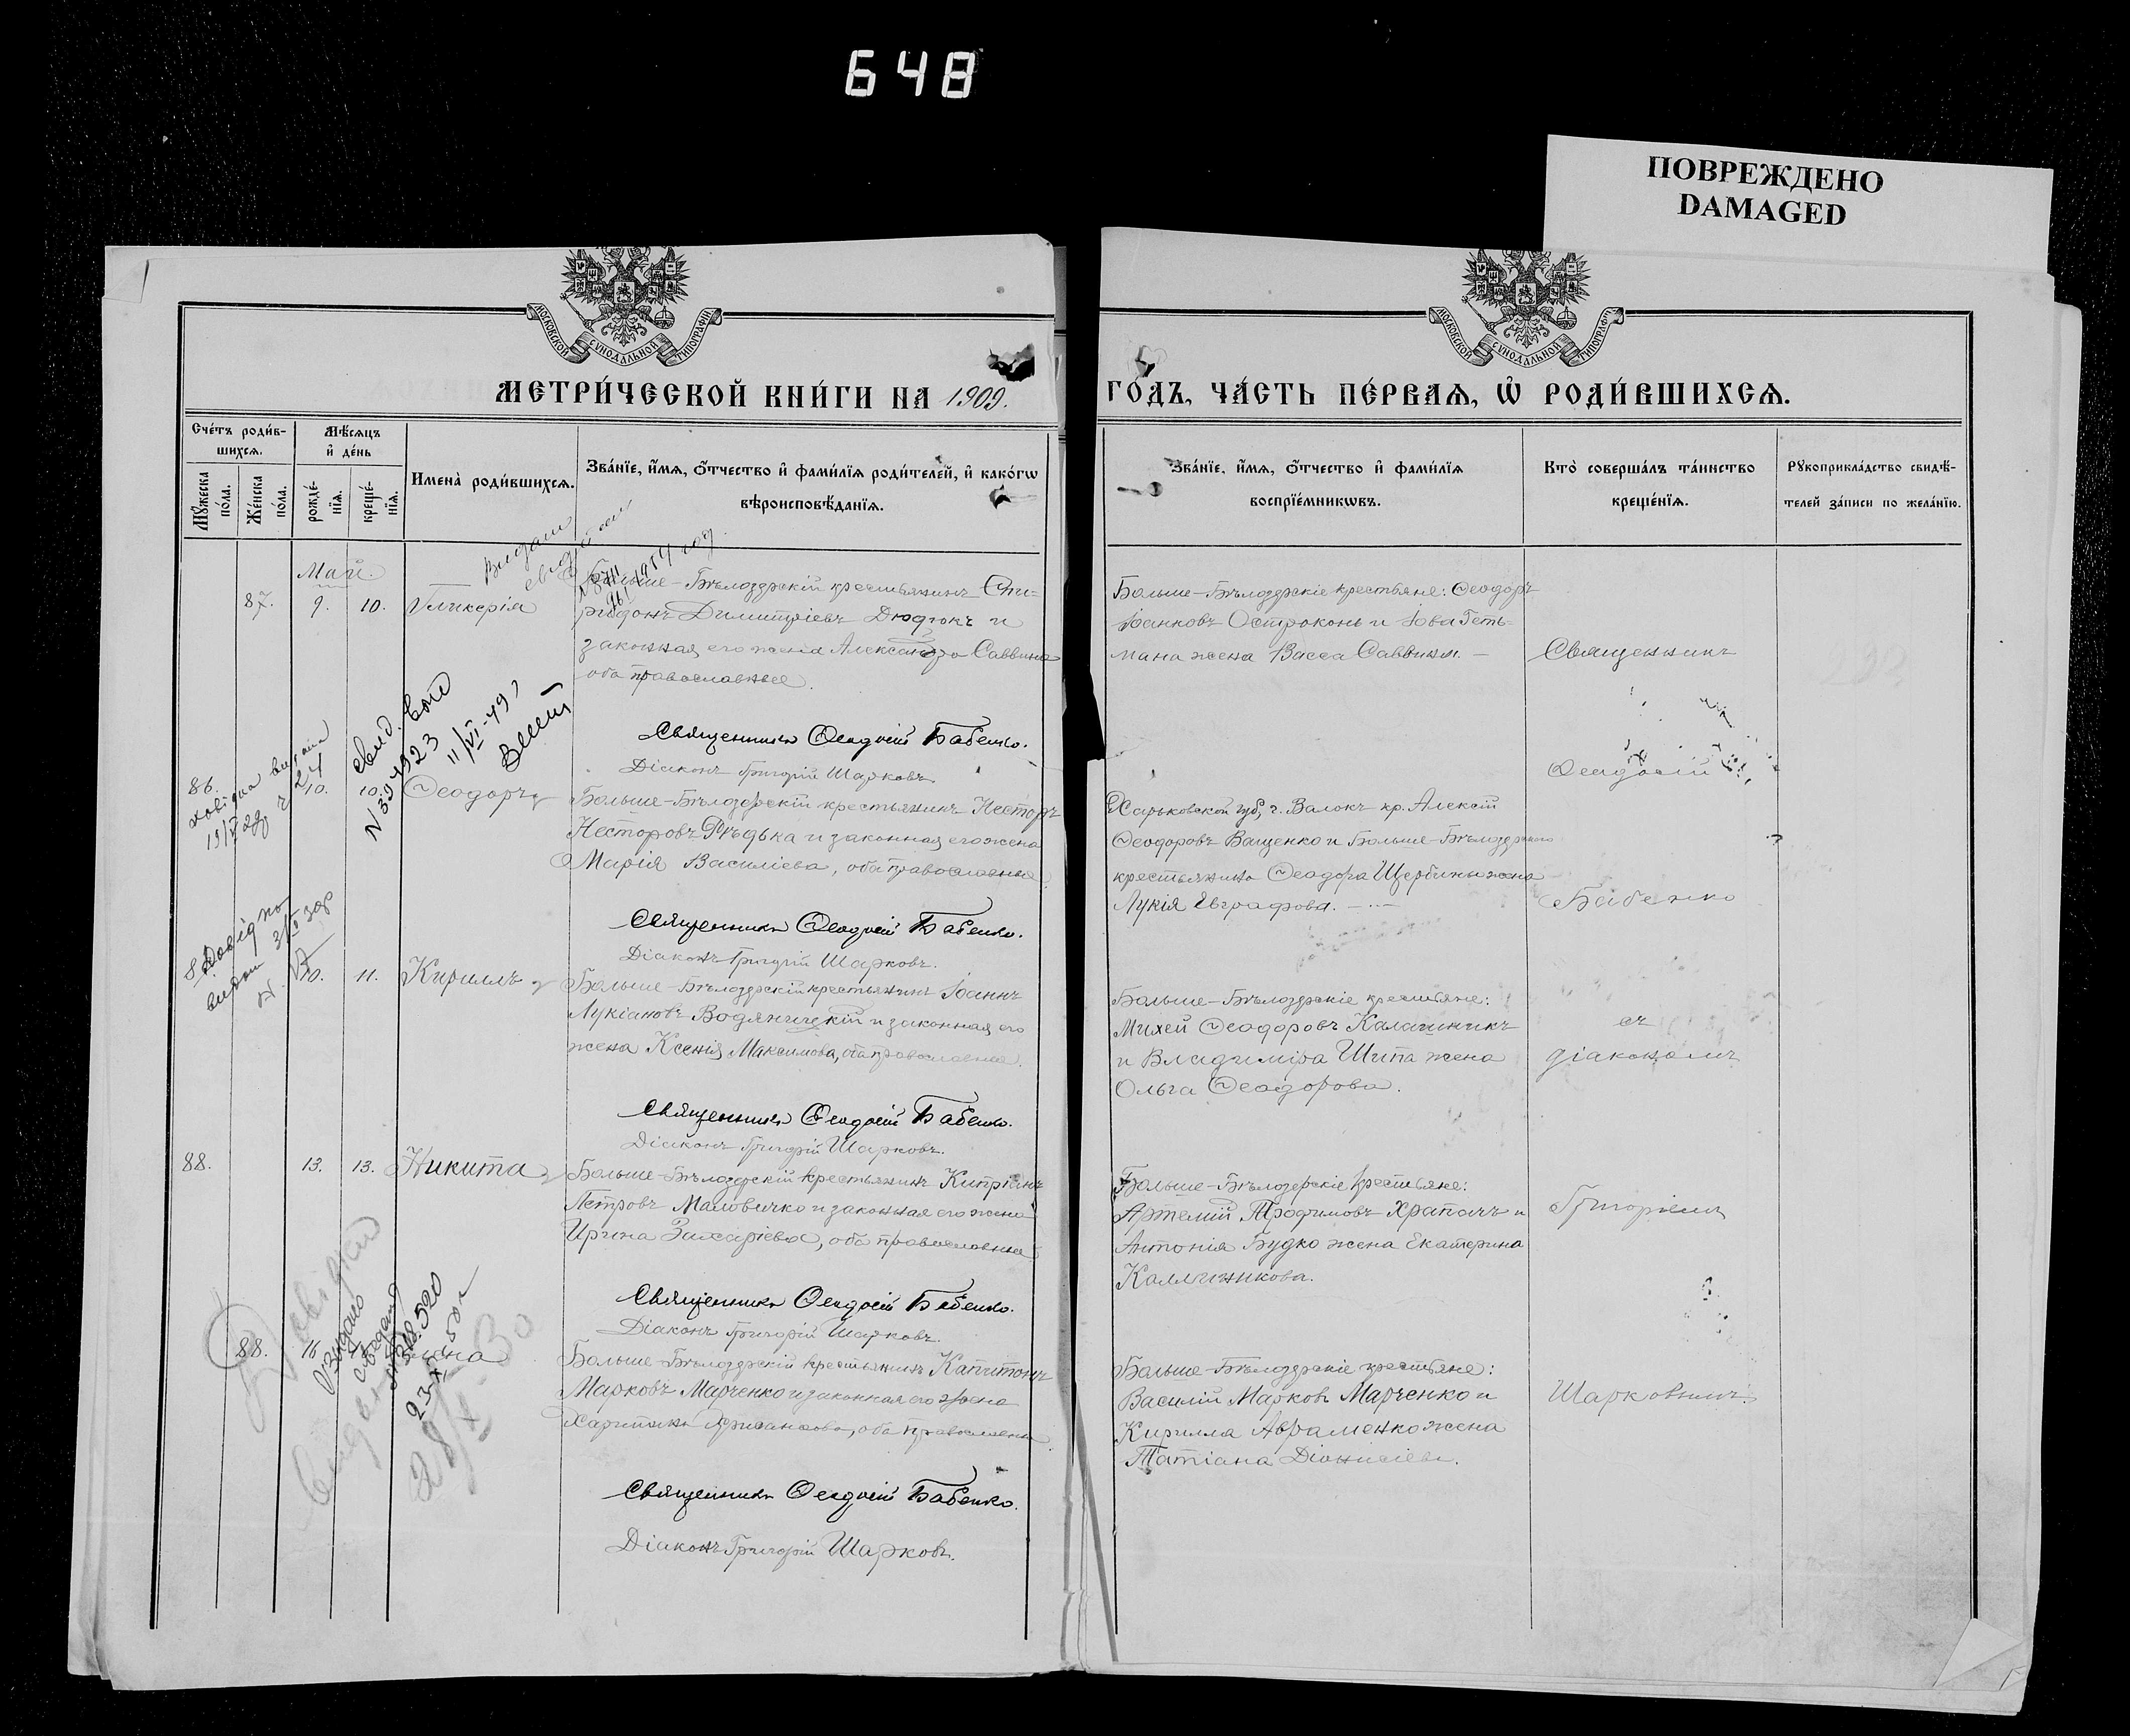 648
ПОВРЕЖДЕНО
DAMAGED
МОСКОВСКОЙ СѴНОДАЛЬНОЙ ТИПОГРАФІИ
МОСКОВСКОЙ СѴНОДАЛЬНОЙ ТИПОГРАФІИ
МЕТРИ́ЧЕСКОЙ КНИ́ГИ НА 1909.
ГО́ДЪ, ЧА́СТЬ ПЕ́РВАѦ, Ѽ РОДИ́ВШИХСѦ.
Сче́тъ роди́в-
шихсѧ.
Мꙋ́жеска по́ла.
Же́нска по́ла.
Мѣ́сѧцъ и҆ де́нь
рожде́-
нїѧ.
креще́-
нїѧ.
Имена̀ роди́вшихсѧ.
Зва́нїе, и҆́мѧ, ѻ҆́тчество и҆ фами́лїѧ роди́телей, и҆ како́гѡ
вѣроисповѣ́данїѧ.
Зва́нїе, и҆́мѧ, ѻ҆́тчество и҆ фами́лїѧ
воспрїе́мникѡвъ.
Кто̀ соверша́лъ та́инство
креще́нїѧ.
Рꙋкоприкла́дство свидѣ́-
телей за́писи по жела́нїю.
Май.
87. 9. 10. Гликерія
Больше-Бѣлозерскій крестьянинъ Спи-
ридонъ Димитріевъ Дюдюкъ и
законная его жена Александра Саввина
оба православные.
Священникъ Ѳеодосій Бабенко.
Діаконъ Григорій Шарковъ.
Больше-Бѣлозерскіе крестьяне: Ѳеодоръ
Іоанновъ Остроконь и Іова Геть-
мана жена Васса Саввина. —
Священникъ
Ѳеодосій
свид. выд
11/VI-49
86. 10. 10. Ѳеодоръ
Больше-Бѣлозерскій крестьянинъ Несторъ
Несторовъ Рѣдька и законная его жена
Марія Василіева, оба православные.
Священникъ Ѳеодосій Бабенко.
Діаконъ Григорій Шарковъ.
Харьковской губ, г. Валокъ кр. Алексій
Ѳеодоровъ Ващенко и Больше-Бѣлозерскаго
крестьянина Ѳеодора Щербины жена
Лукія Евграфова. —
Бабенко
10. 11. Кириллъ
Больше-Бѣлозерскій крестьянинъ Іоаннъ
Лукіановъ Водяницкій и законная его
жена Ксенія Максимова, оба православные.
Священникъ Ѳеодосій Бабенко.
Діаконъ Григорій Шарковъ.
Больше-Бѣлозерскіе крестьяне:
Михей Ѳеодоровъ Калашникъ
и Владиміра Шипа жена
Ольга Ѳеодорова.
съ
діакономъ
88. 13. 13. Никита
Больше-Бѣлозерскій крестьянинъ Кипріанъ
Петровъ Маловичко и законная его жена
Ирина Захаріева, оба православные
Священникъ Ѳеодосій Бабенко.
Діаконъ Григорій Шарковъ.
Больше-Бѣлозерскіе крестьяне:
Артемій Трофимовъ Храпачъ и
Антонія Будко жена Екатерина
Каллиникова.
Григоріемъ
88. 16
Больше-Бѣлозерскій крестьянинъ Капитонъ
Марковъ Марченко и законная его жена
оба православные
Священникъ Ѳеодосій Бабенко.
Діаконъ Григорій Шарковъ.
Больше-Бѣлозерскіе крестьяне:
Василій Марковъ Марченко и
Кирилла Авраменко жена
Татіана Діонисіева.
Шарковымъ.